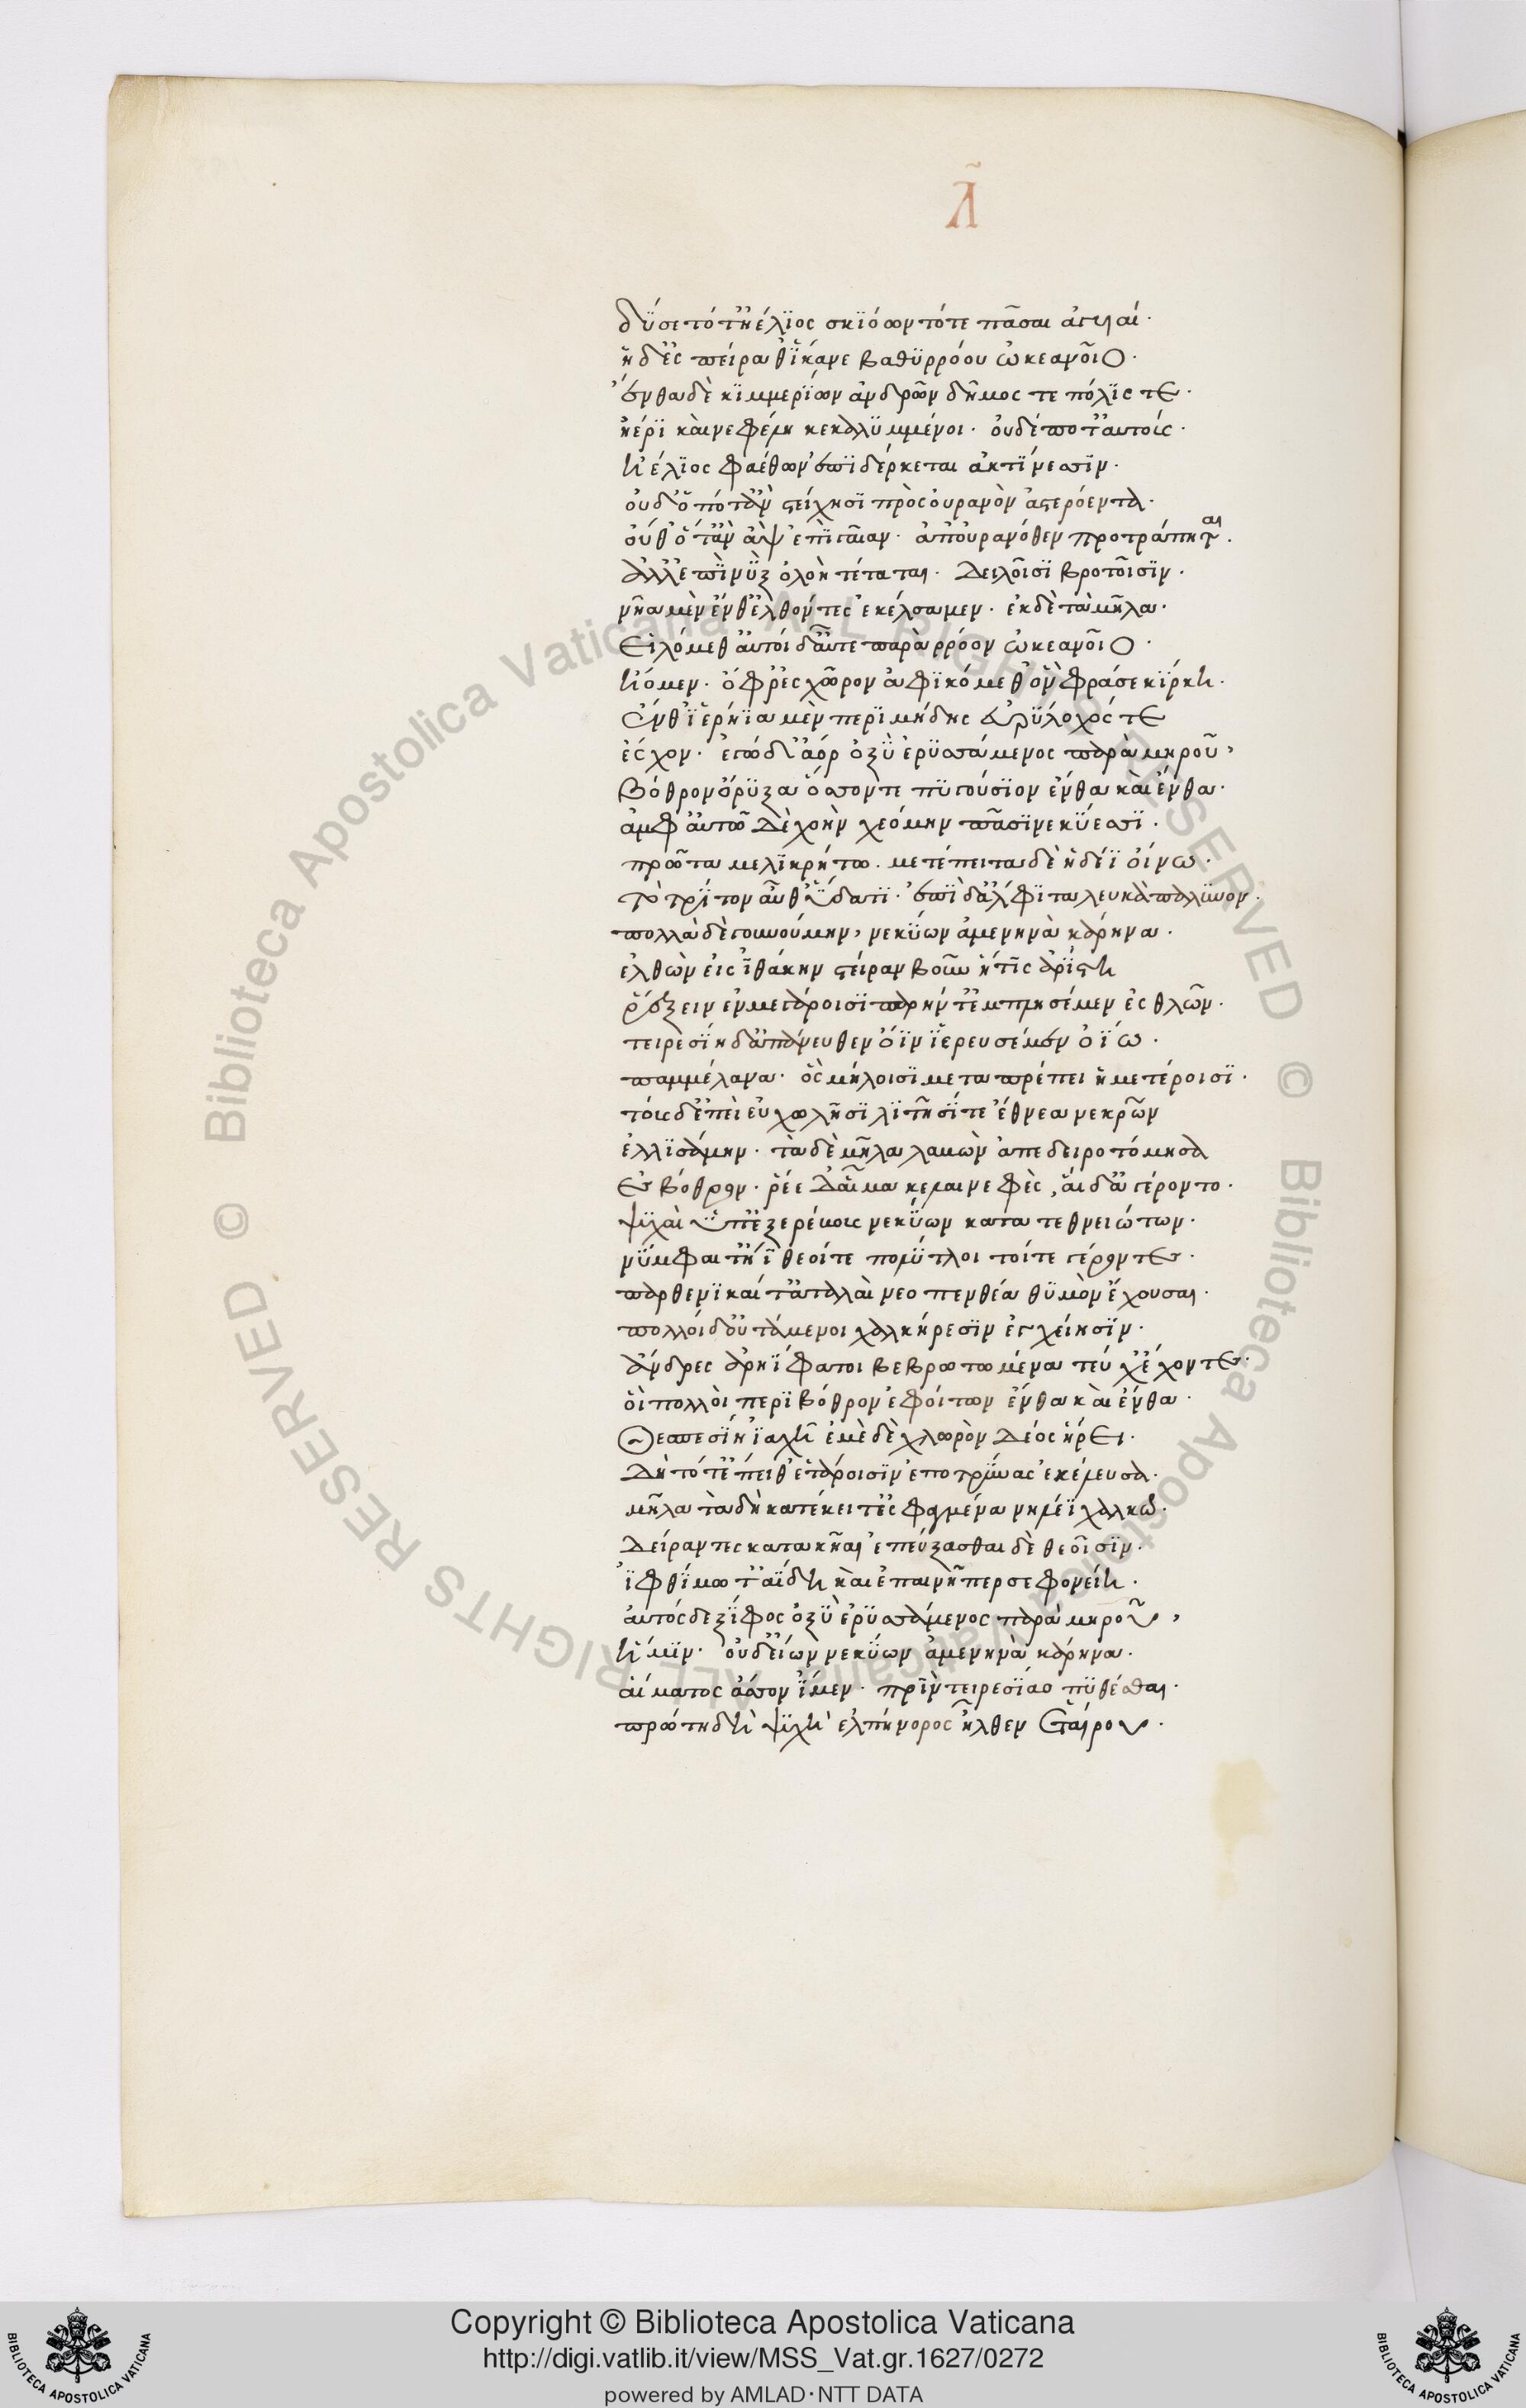 Λ̃
δύσετό τ' ἠέλιος σκιόωντό τε πᾶσαι ἀγυιαί·
ἡ δ' ἐς πείραθ' ἵκανε βαθυρρόου ὠκεανοῖο·
ἔνθα δὲ κιμμερίων ἀνδρῶν δῆμός τε πόλις τε·
ἠέρι καὶ νεφέλη κεκαλυμμένοι· οὐδέ ποτ' αὐτοὺς·
ἠέλιος φαέθων ἐπιδέρκεται ἀκτίνεσσιν·
οὐδ' ὁπότ' ἂν στείχησι πρὸς οὐρανὸν ἀστερόεντα·
οὔθ' ὅτ' ἂν ἂψ ἐπὶ γαῖαν· ἀπ' οὐρανόθεν προτράπηται·
ἀλλ' ἐπὶ νὺξ ὀλοὴ τέταται· δειλοῖσι βροτοῖσιν·
νῆα μὲν ἔνθ' ἐλθόντες ἐκέλσαμεν· ἐκ δὲ τὰ μῆλα·
εἱλόμεθ' αὐτοὶ δ' αὖτε παρὰ ῥρόον ὠκεανοῖο·
ἤομεν· ὄφρ' ἐς χῶρον ἀφικόμεθ' ὃν φράσε κίρκη·
ἔνθ' ἱερήϊα μὲν περιμήδης εὐρύλοχός τε
ἔσχον· ἐγὼ δ' ἄορ ὀξὺ ἐρυσσάμενος παρὰ μηροῦ,
βόθρον ὄρυξα ὅσον τε πυγούσιον ἔνθα καὶ ἔνθα·
ἀμφ' αὐτῶ δὲ χοὴν χεόμην πᾶσιν εκύεσσι·
πρῶτα μελικρήτω· μετέπειτα δὲ ἡδέϊ οἴνω·
τὸ τρίτον αὖθ' ὕδατι· ἐπὶ δ' ἄλφιτα λευκὰ πάλυνον·
πολλὰ δὲ γουνούμην, νεκύων ἀμενηνὰ κάρηνα·
ἐλθὼν εἰς ἰθάκην στεῖραν βοῦν ἥτις ἀρίστη
ῥέξειν ἐν μεγάροισι πυρήν τ' ἐμπλησέμεν ἐσθλῶν·
τειρεσίη δ' ἀπάνευθεν ὄϊν ἱερευσέμεν οἴω·
παμμέλανα· ὃς μήλοισι μεταπρέπει ἡμετέροισι·
τοὺς δ' ἐπεὶ εὐχωλῆσι λιτῆσί τε ἔθνεα νεκρῶν
ἐλλισάμην· τὰ δὲ μῆλα λαβὼν ἀπεδειροτόμησα
ἐς βόθρον· ῥέε δ' αἷμα κελαινεφὲς, αἱ δ' ἀγέροντο·
ψυχαὶ ὑπ' ἐξ ἐρέβους νεκύων κατατεθνειώτων·
νύμφαι τ' ἠΐθεοί τε πολύτλητοι τε γέροντες·
παρθενικαί τ' ἀταλαὶ νεοπενθέα θυμὸν ἔχουσαι·
πολλοὶ δ' οὐτάμενοι χαλκήρεσιν ἐγχείησιν·
ἄνδρες ἀρηΐφατοι βεβροτωμένα τεύχε' ἔχοντες·
οἳ πολλοὶ περὶ βόθρον ἐφοίτων ἔνθα καὶ ἔνθα·
Θεσπεσίη ἰαχῆ ἐμὲ δὲ χλωρὸν δέος ἥρει·
δὴ τότ' ἔπειθ' ἑτάροισιν ἐποτρύνας ἐκέλευσα·
μῆλα τὰ δὴ κατέκειτ' ἐσφαγμένα νηλέϊ χαλκῶ·
δείραντες κατακῆαι ἐπεύξασθαι δὲ θεοῖσιν·
ἰφθίμω τ' ἀΐδη καὶ ἐπαινῆ περσεφονείη·
αὐτὸς δὲ ξίφος ὀξὺ ἐρυσσάμενος παρὰ μηροῦ,
ἥμην· οὐδ' εἴων νεκύων ἀμενηνὰ κάρηνα·
αἵματος ἆσσον ἴμεν· πρὶν τειρεσίαο πυθέσθαι·
πρώτη δὴ ψυχὴ ἐλπήνορος ἦλθεν ἑταίρου·
Copyright © Biblioteca Apostolica Vaticana
http://digi.vatlib.it/view/MSS_Vat.gr.1627/0272
powered by AMLAD·NTT DATA